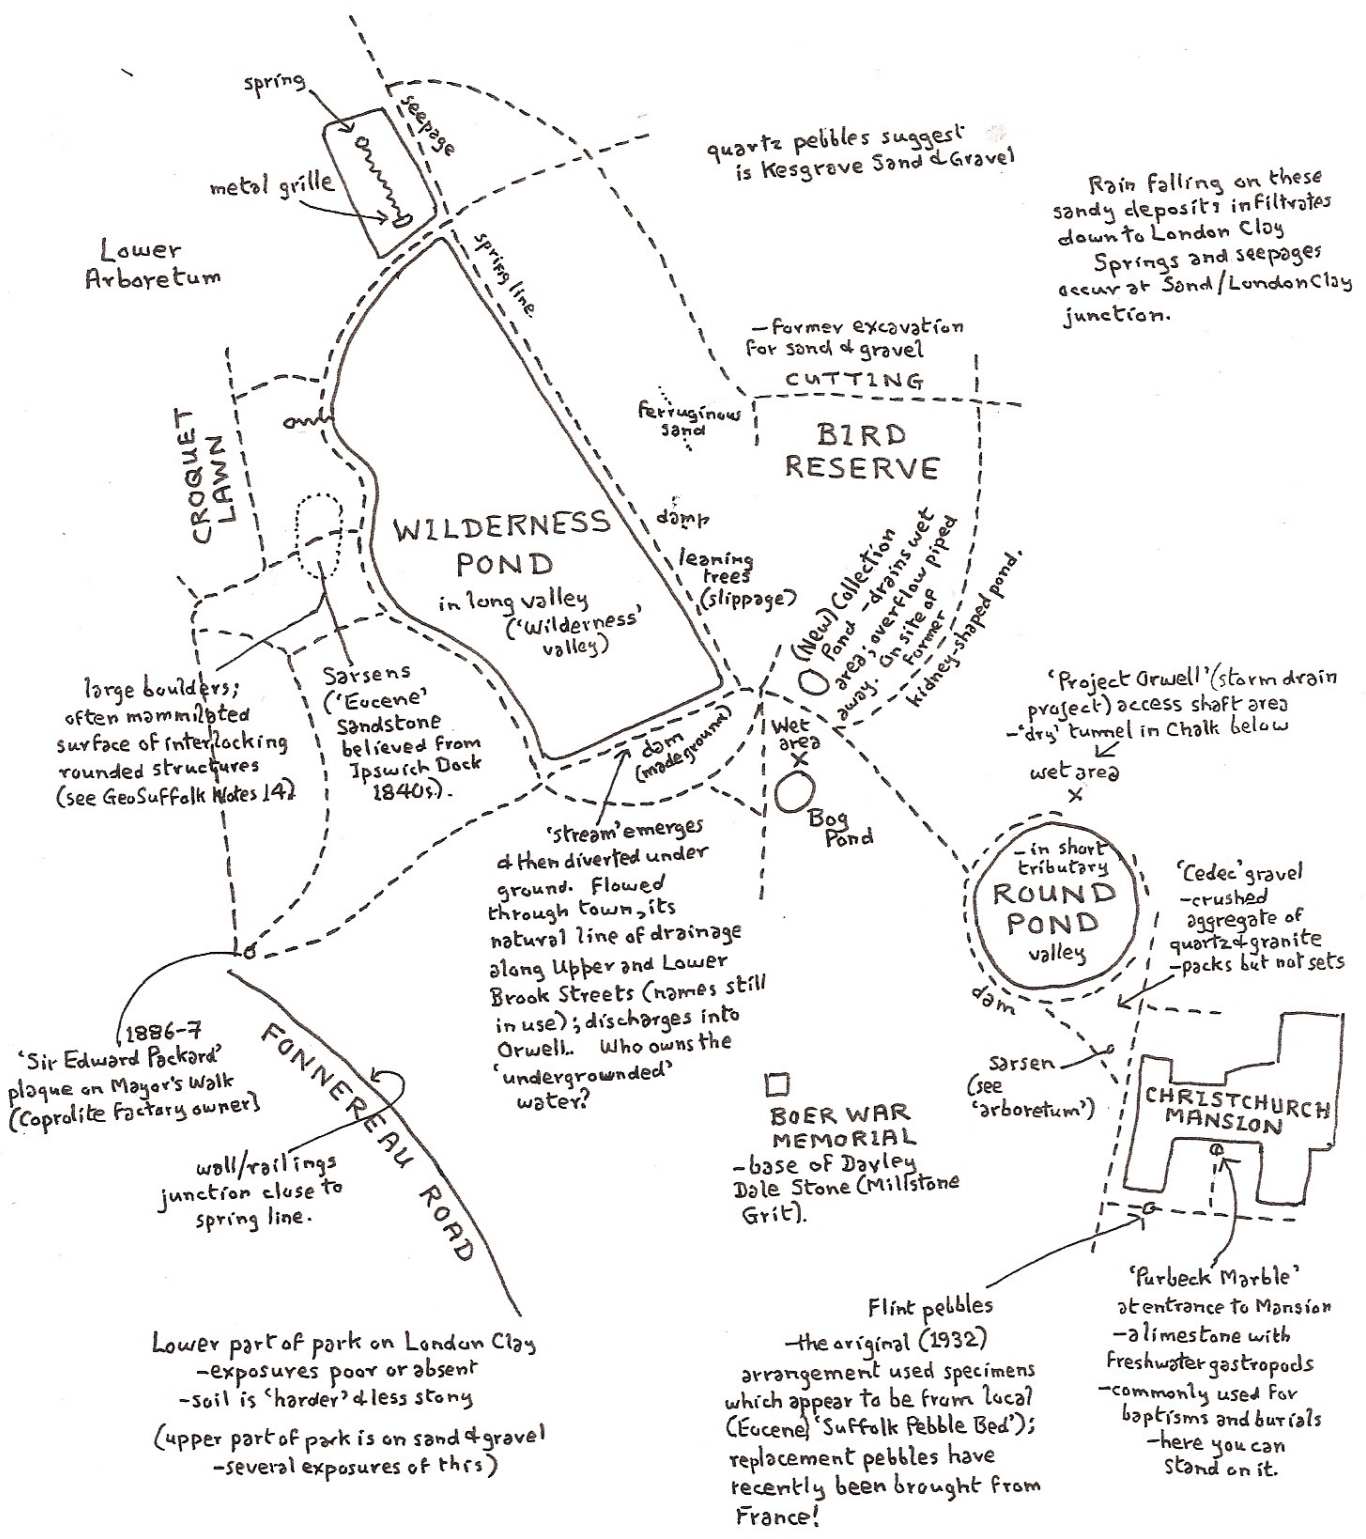 spring
seepage
metal grille
Lower
Arboretum
quartz pebbles suggest
is Kesgrave Sand & Gravel
Rain falling on these
sandy deposits infiltrates
down to London Clay
Springs and seepages
occur at Sand/London Clay
junction.
spring line
-former excavation
for sand & gravel
CUTTING
ferruginous
sand
BIRD
RESERVE
CROQUET
LAWN
WILDERNESS
POND
in long valley
('Wilderness'
valley)
damp
leaning
trees
(slippage)
(New) Collection
Pond -drains wet
area; overflow piped
away. On site of
former
kidney-shaped pond.
large boulders;
often mammilated
surface of interlocking
rounded structures
(see GeoSuffolk Notes 14)
Sarsens
('Eocene'
Sandstone
believed from
Ipswich Dock
1840s).
dam
(made ground)
Wet
area
x
Bog
Pond
'Project Orwell' (storm drain
project) access shaft area
-'dry' tunnel in Chalk below
wet area
x
-in short
tributary
ROUND
POND
valley
dam
'Cedec' gravel
-crushed
aggregate of
quartz & granite
-packs but not sets
'stream' emerges
& then diverted under
ground. Flowed
through town, its
natural line of drainage
along Upper and Lower
Brook Streets (names still
in use); discharges into
Orwell.. Who owns the
'undergrounded'
water?
1886-7
'Sir Edward Packard'
plaque on Mayor's Walk
(Coprolite Factory owner)
FONNEREAU ROAD
wall/railings
junction close to
spring line.
sarsen
(see
'arboretum')
CHRISTCHURCH
MANSION
BOER WAR
MEMORIAL
-base of Darley
Dale Stone (Millstone
Grit).
Lower part of park on London Clay
-exposures poor or absent
-soil is 'harder' & less stony
(upper part of park is on sand & gravel
-several exposures of this)
Flint pebbles
-the original (1932)
arrangement used specimens
which appear to be from local
(Eocene) 'Suffolk Pebble Bed');
replacement pebbles have
recently been brought from
France!
'Purbeck Marble'
at entrance to Mansion
-a limestone with
freshwater gastropods
-commonly used for
baptisms and burials
-here you can
stand on it.